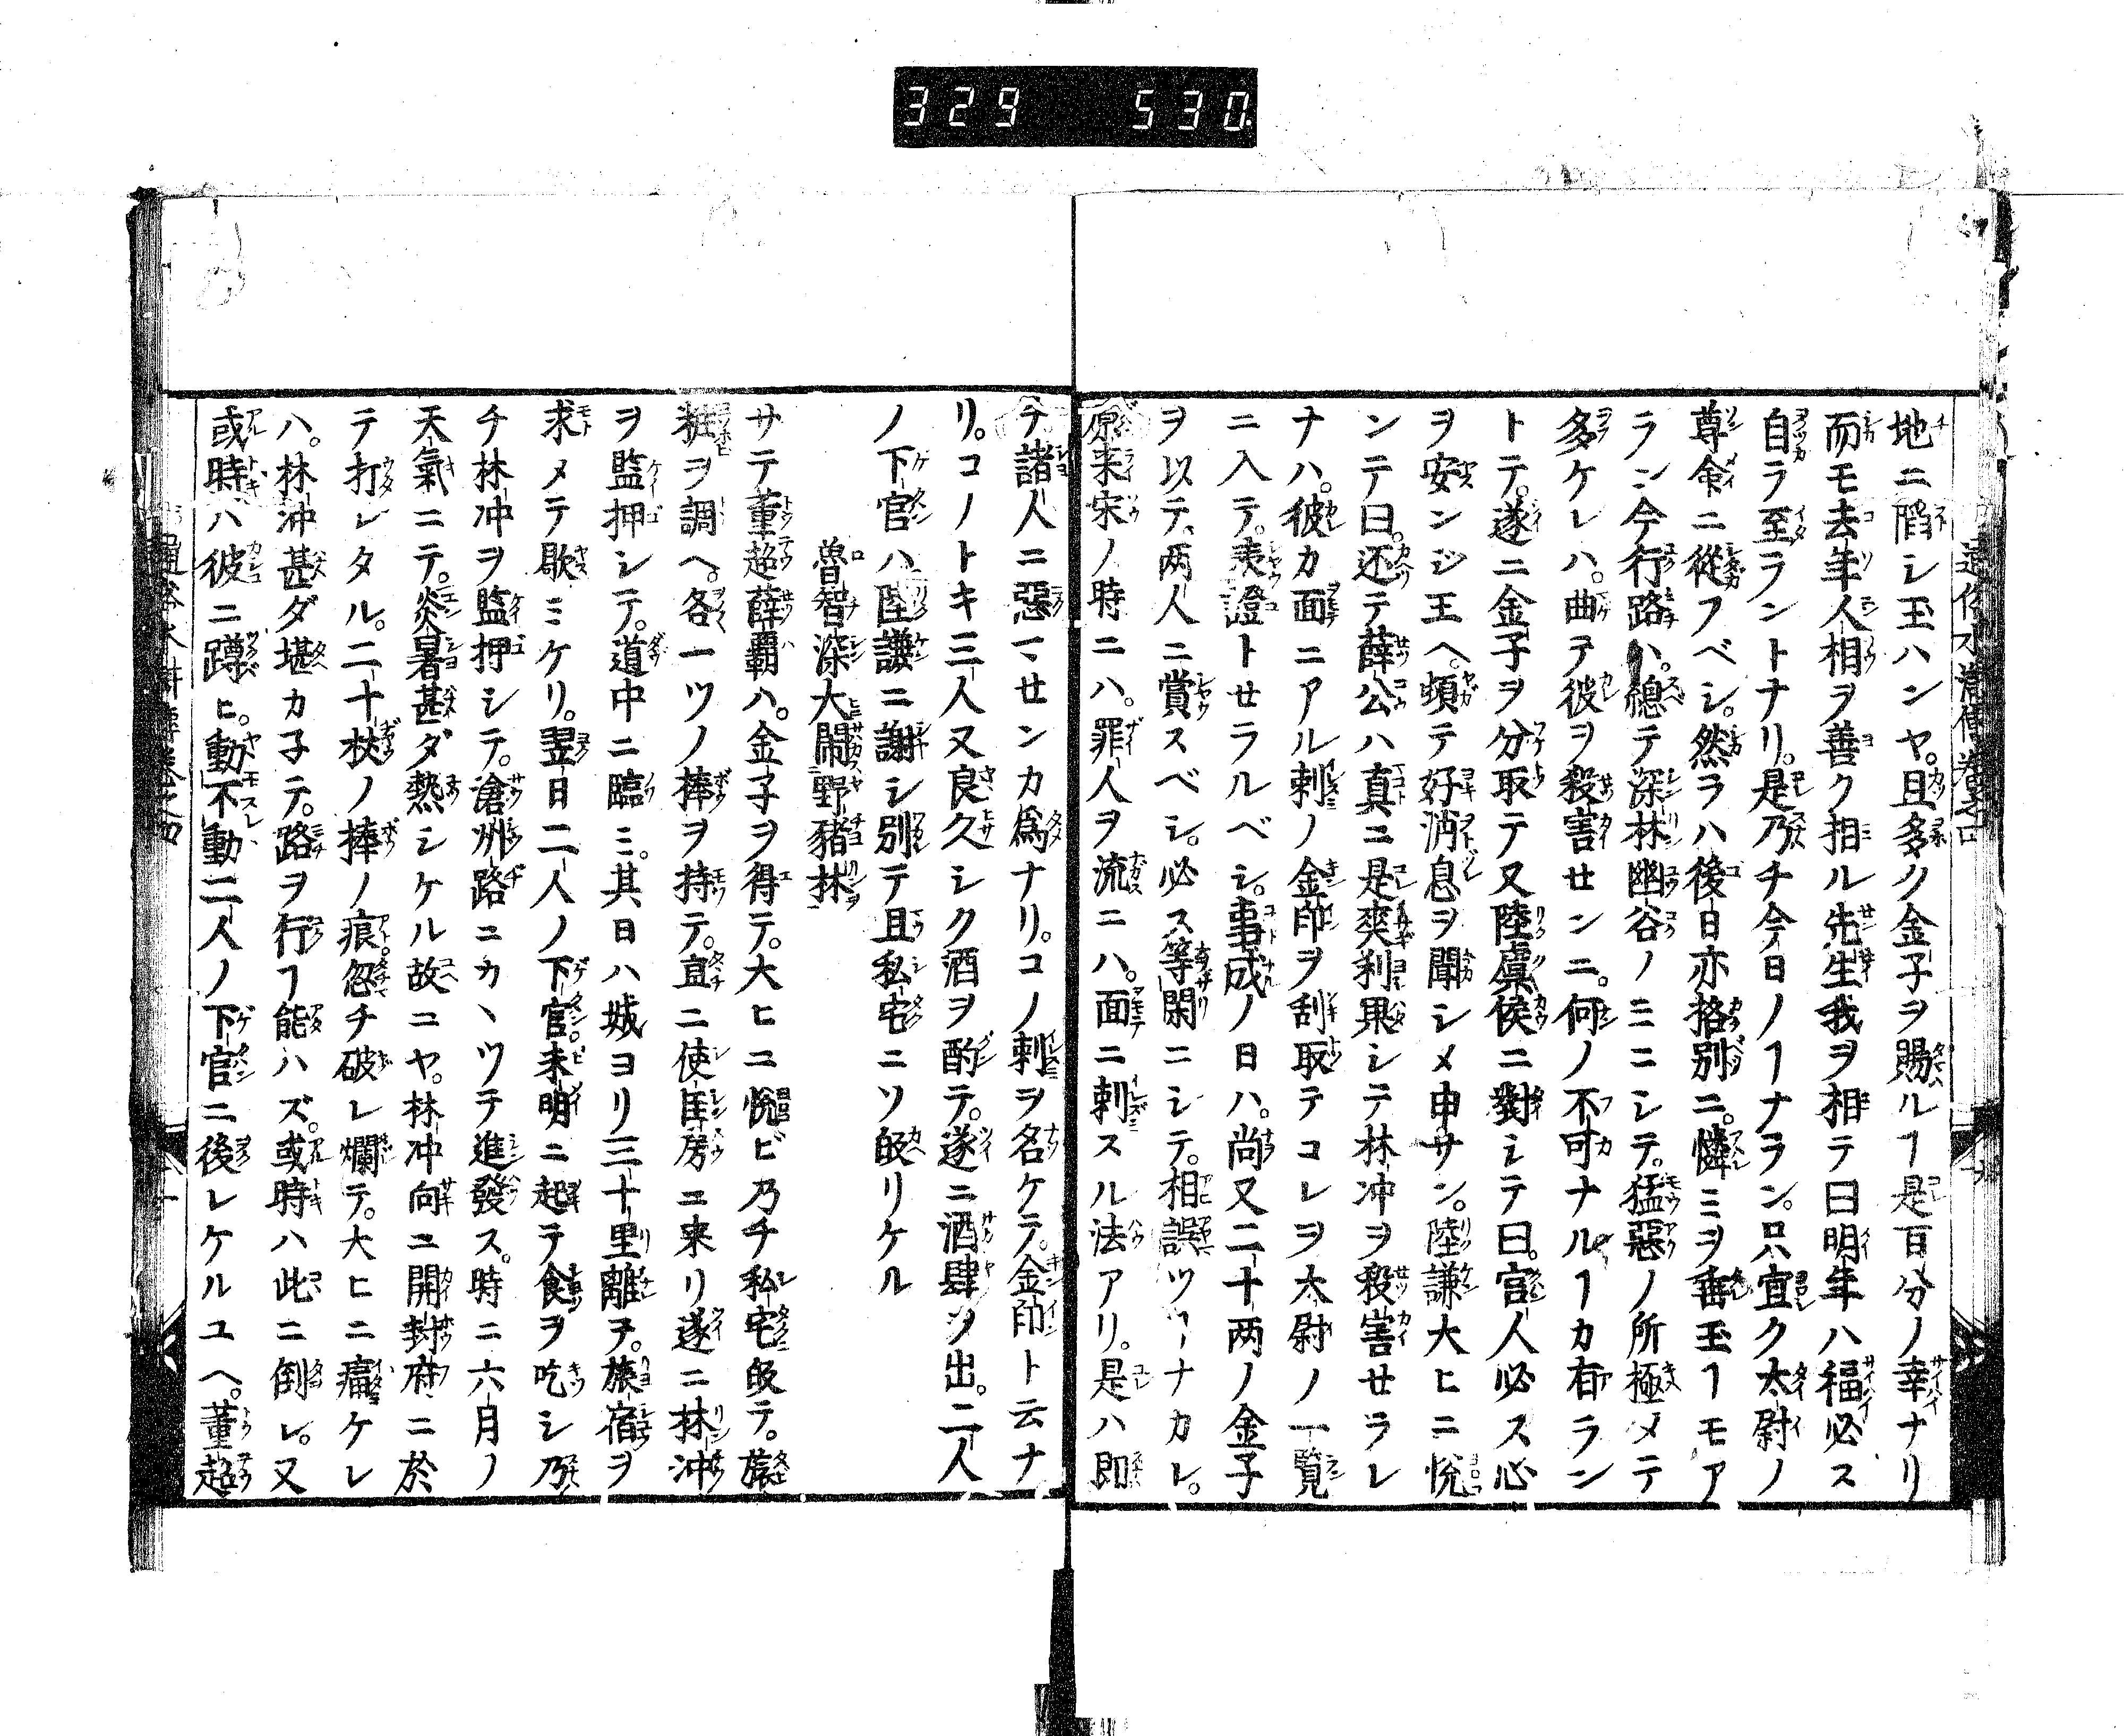 329 530
地ニ陷シ玉ハンヤ。且多ク金子ヲ賜ルヿ是百分ノ幸ナリ
而モ去年人相ヲ善ク相ル先生我ヲ相テ曰明年ハ福必ス
自ラ至ラントナリ。是乃チ今日ノヿナラン。只宜ク太尉ノ
尊命ニ從フベシ。然ラハ後日亦格別ニ。憐ミヲ垂玉ヿモア
ラン今行路ハ。總テ深林幽谷ノミニシテ。猛惡ノ所極メテ
多ケレハ。曲テ彼ヲ殺害センニ。何ノ不可ナルヿカ有ラン
トテ。遂ニ金子ヲ分取テ又陸虞候ニ對シテ曰。官人必ス心
ヲ安ンジ玉ヘ。頓テ好消息ヲ聞シメ申サン。陸謙大ヒニ悅
ンテ曰。还テ薛公ハ真ニ是爽利果シテ林冲ヲ殺害セラレ
ナハ。彼カ面ニアル刺ノ金印ヲ刮取テコレヲ太尉ノ一覧
ニ入テ。表證トセラルベシ。事成ノ日ハ。尚又二十两ノ金子
ヲ以テ。两人ニ賞スベシ。必ス等閑ニシテ。相誤ツヿナカレ。
原来宋ノ時ニハ。罪人ヲ流ニハ。面ニ刺スル法アリ。是ハ即
チ諸人ニ惡マセンカ爲ナリ。コノ刺ヲ名ケテ。金印ト云ナ
リ。コノトキ三人又良久シク酒ヲ酌テ。遂ニ酒肆ヲ出。二人
ノ下官ハ陸謙ニ謝シ別テ且私宅ニソ皈リケル
魯智深大閙野豬林
サテ董超薛覇ハ。金子ヲ得テ。大ヒニ悅ビ乃チ私宅皈テ。旅
粧ヲ調ヘ。各一ツノ棒ヲ持テ。直ニ使臣房ニ来リ遂ニ林冲
ヲ監押シテ。道中ニ臨ミ。其日ハ城ヨリ三十里離テ。旅宿ヲ
求メテ歇ミケリ。翌日二人ノ下官。未明ニ起テ食ヲ吃シ乃
チ林冲ヲ監押シテ。滄洲路ニカヽツテ進發ス。時ニ六月ノ
天氣ニテ。炎暑甚ダ熱シケル故ニヤ。林冲向ニ開封府ニ於
テ打レタル。二十杖ノ棒ノ痕。忽チ破レ爛テ。大ヒニ痛ケレ
ハ。林冲甚ダ堪カ子テ。路ヲ行ヿ能ハズ。或時ハ此ニ倒レ。又
或時ハ彼ニ蹲ヒ。動不動二人ノ下官ニ後レケルユヘ。董超